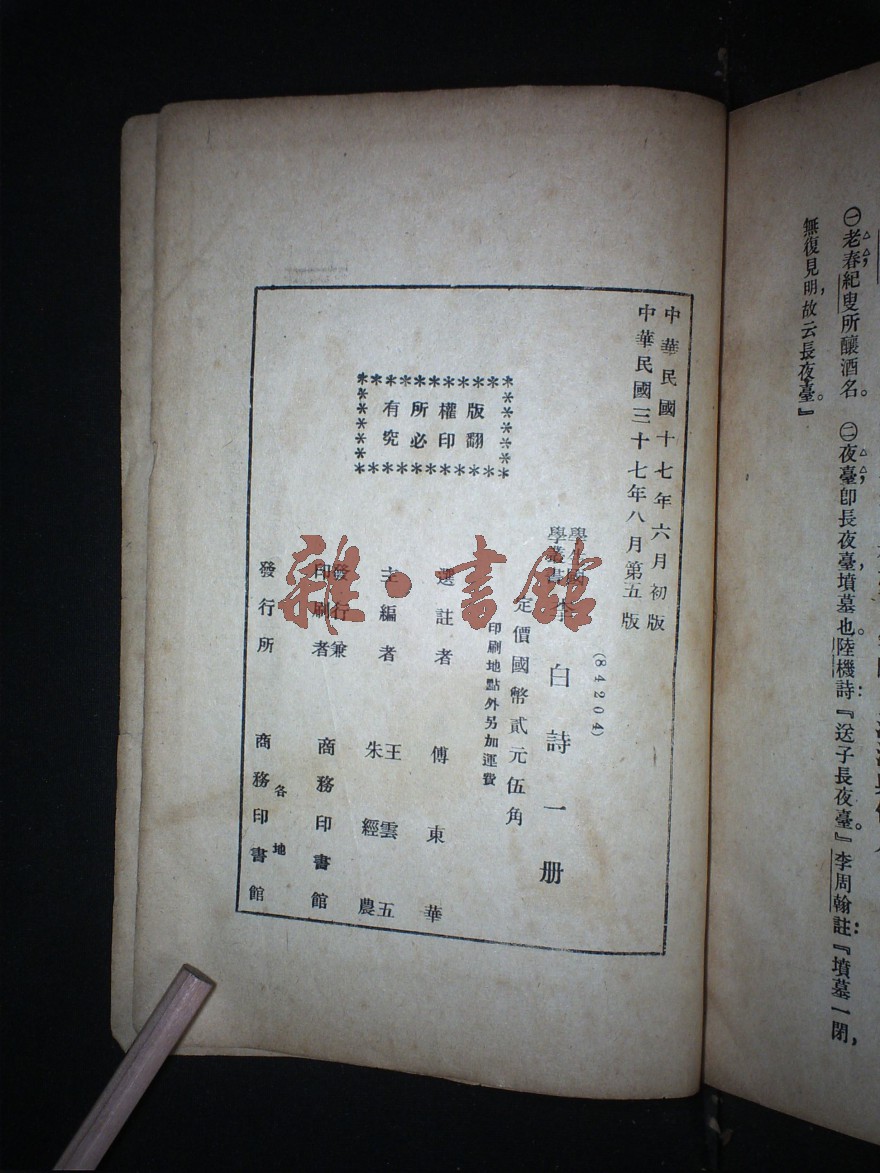 ㊀老春，紀叟所釀酒名。
㊁夜臺，卽長夜臺，墳墓也。陸機詩：『送子長夜臺。』李周翰註：『墳墓一閉，
無復見明，故云長夜臺。』
中華民國十七年六月初版
中華民國三十七年八月第五版
(84204)
學生國學叢書
李白詩一册
定價國幣貳元伍角
印刷地點外另加運費
版權所有
翻印必究
選註者 傅東華
主編者 王雲五
朱經農
發行兼印刷者 商務印書館
各地
發行所 商務印書館
雜·書館